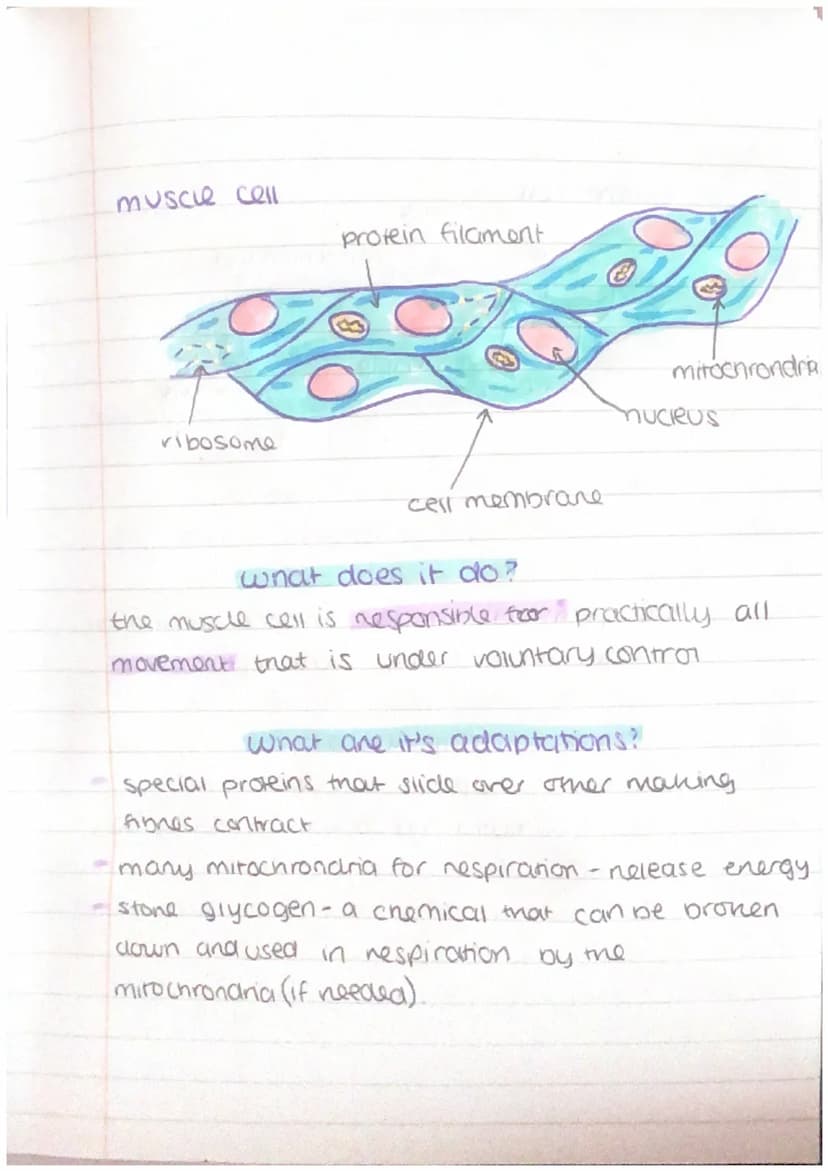 muscle cell
protein filament
mitochrondria
nucleus
ribosome
cell membrane
what does it do?
the muscle cell is responsible for practically all
movement that is under voluntary control
What are it's adaptations?
special proteins that slide over other making
fibres contract
many mitochrondria for respiration - release energy
store glycogen - a chemical that can be broken
down and used in respiration by the
mitochrondria (if needed).